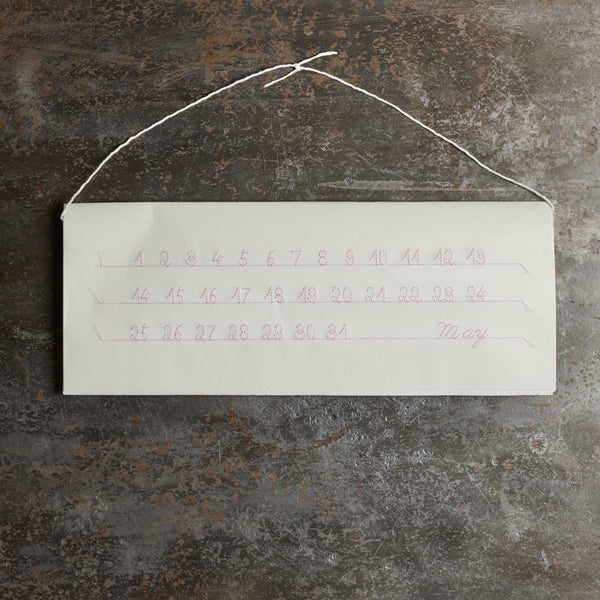 1 2 3 4 5 6 7 8 9 10 11 12 13
14 15 16 17 18 19 20 21 22 23 24
25 26 27 28 29 30 31 May